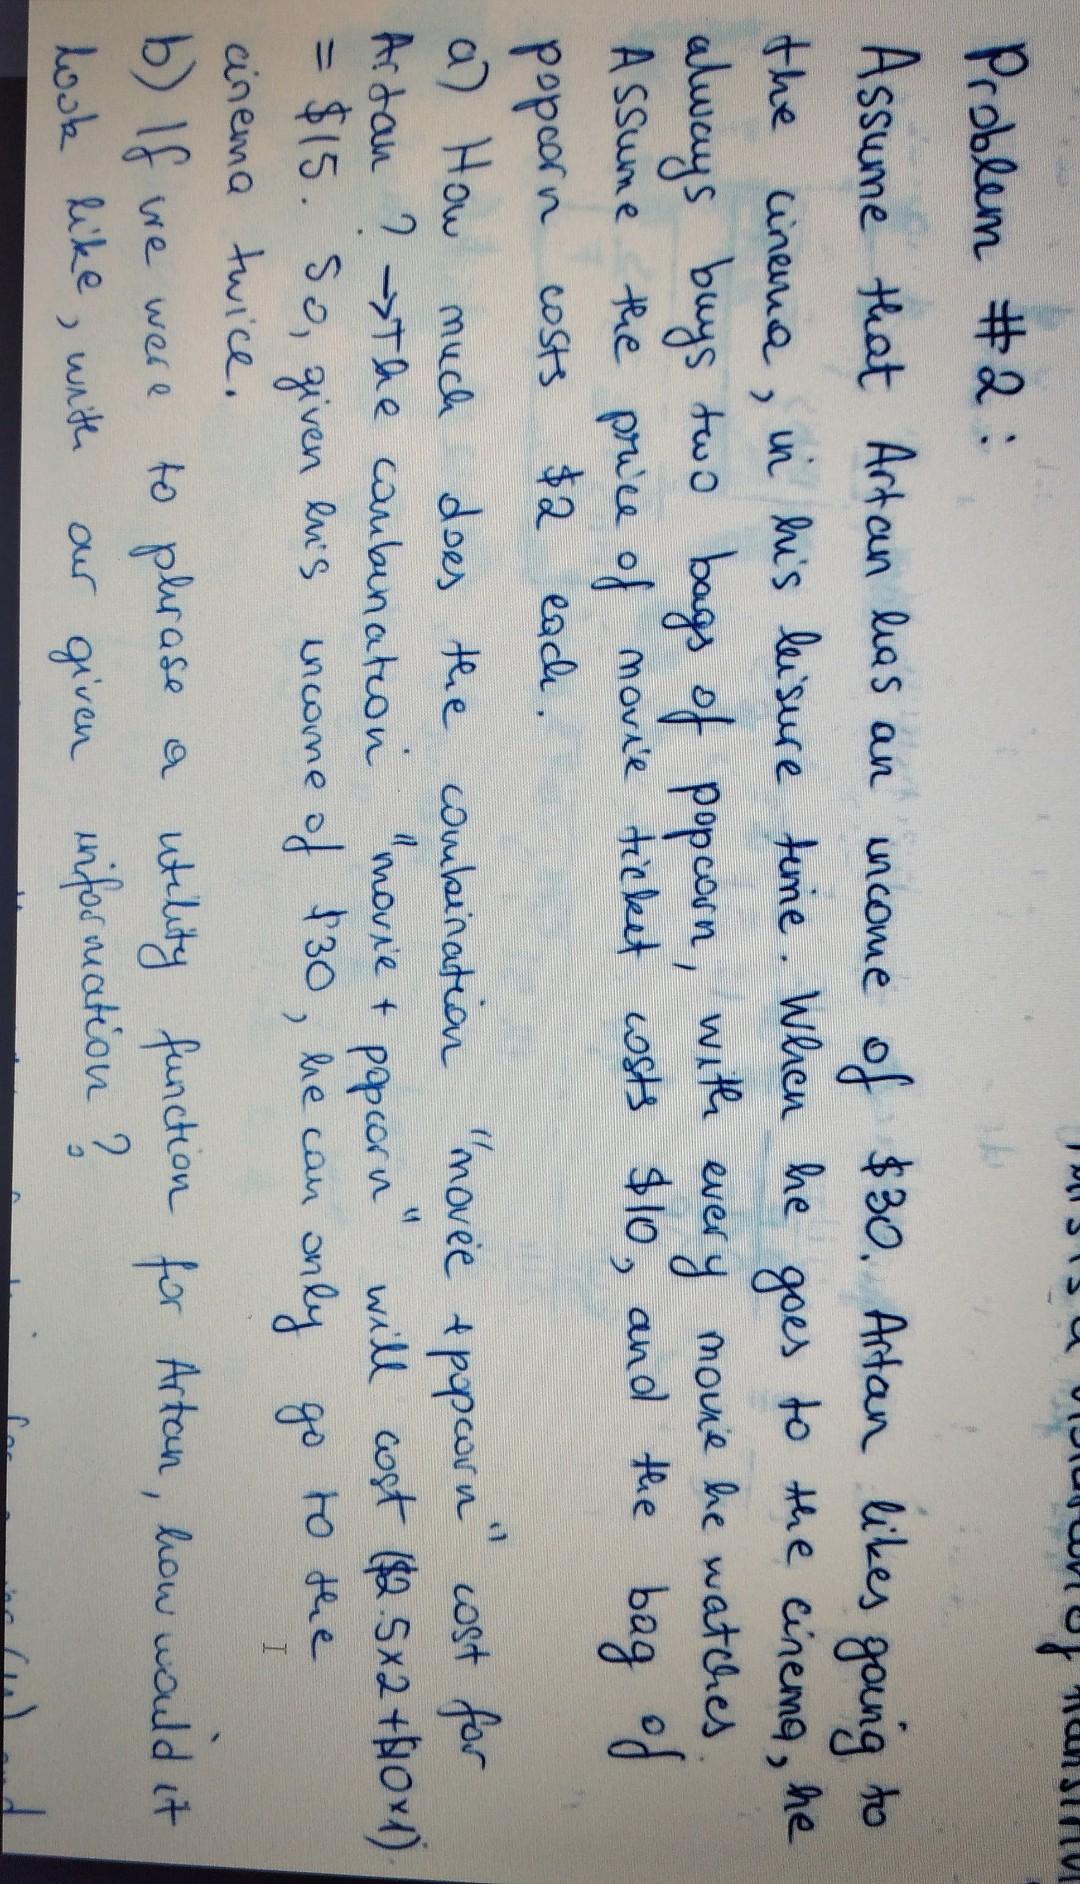 Problem #2:
Assume that Artan has an income of $30. Artan likes going to
the cinema, in his leisure time. When he goes to the cinema, he
always buys two bags of popcorn, with every movie he watches.
Assume the price of movie ticket costs $10, and the bag of
popcorn costs $2 each.
a) How much does the combination "movie + popcorn" cost for
Artan? → The combination "movie + popcorn" will cost ($2.5x2 + $10x1)
= $15. So, given his income of $30, he can only go to the
cinema twice.
b) If we were to phrase a utility function for Artan, how would it
look like, with our given information?